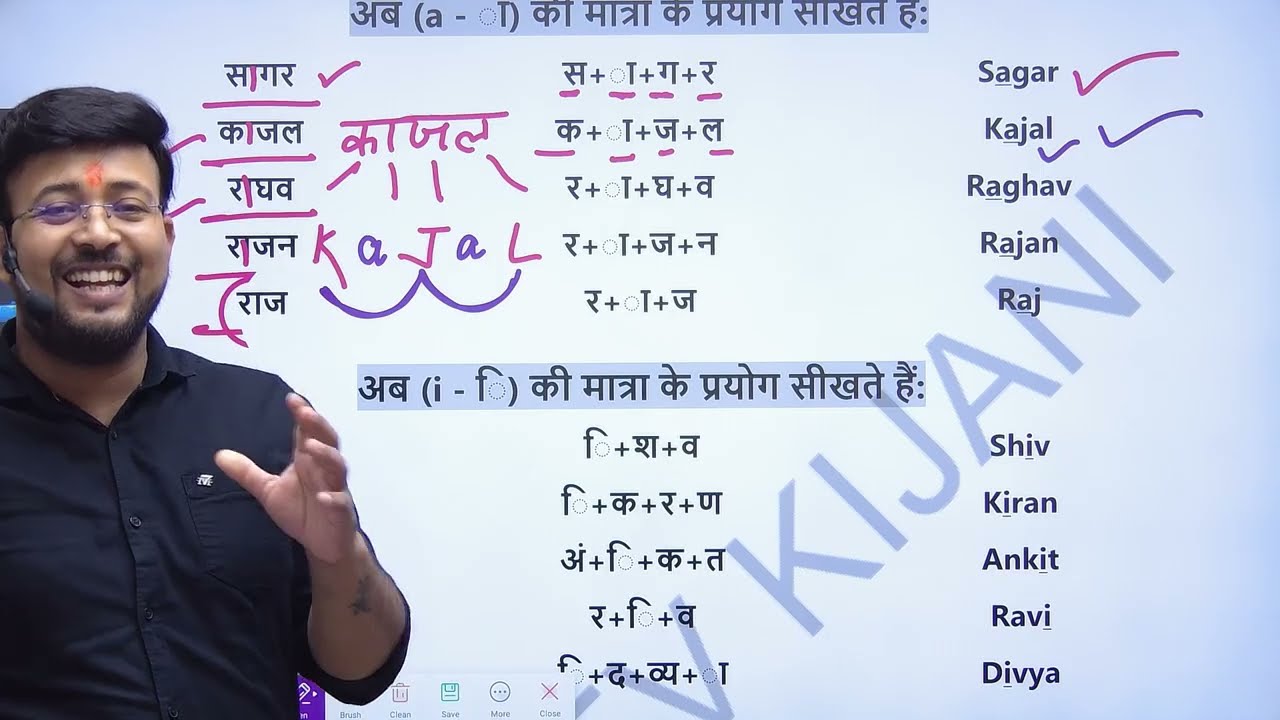 अब (a - ा) की मात्रा के प्रयोग सीखते हैं:
सागर स+ा+ग+र Sagar
काजल काजल क+ा+ज+ल Kajal
राघव र+ा+घ+व Raghav
राजन KaJaL र+ा+ज+न Rajan
राज र+ा+ज Raj
अब (i - ि) की मात्रा के प्रयोग सीखते हैं:
ि+श+व Shiv
ि+क+र+ण Kiran
अं+ि+क+त Ankit
र+ि+व Ravi
ि+द+व्य+ा Divya
V KIJANI
Brush Clean Save More Close